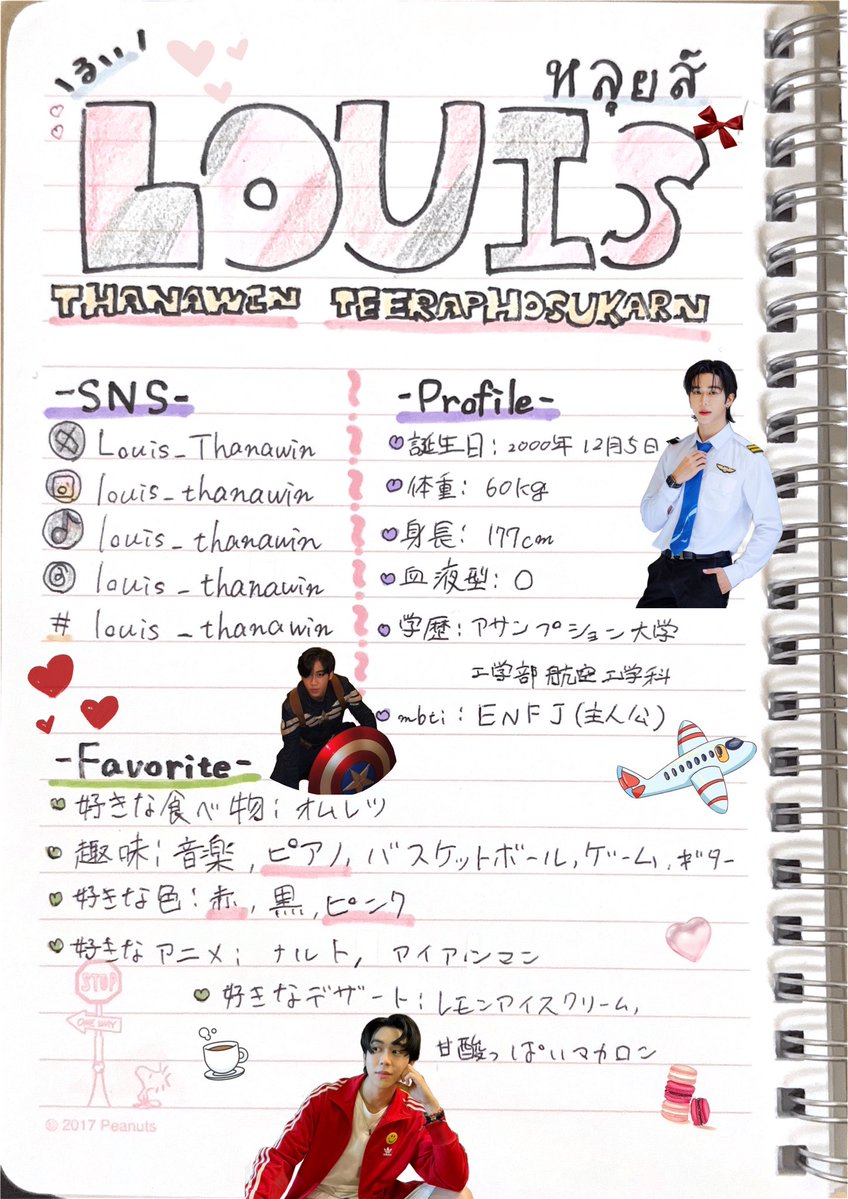 るいい
หลุยส์
LOUIS
THANAWIN TEERAPHOSUKARN
-SNS-
Louis_Thanawin
louis_thanawin
louis_thanawin
louis_thanawin
# louis_thanawin
-Profile-
誕生日:2000年12月5日
体重:60kg
身長:177cm
血液型:O
学歴:アサンプション大学
工学部航空工学科
mbti:ENFJ(主人公)
-Favorite-
好きな食べ物:オムレツ
趣味:音楽,ピアノ,バスケットボール,ゲーム,ギター
好きな色:赤,黒,ピンク
好きなアニメ:ナルト,アイアンマン
好きなデザート:レモンアイスクリーム,
甘酸っぱいマカロン
STOP
ONE WAY
© 2017 Peanuts